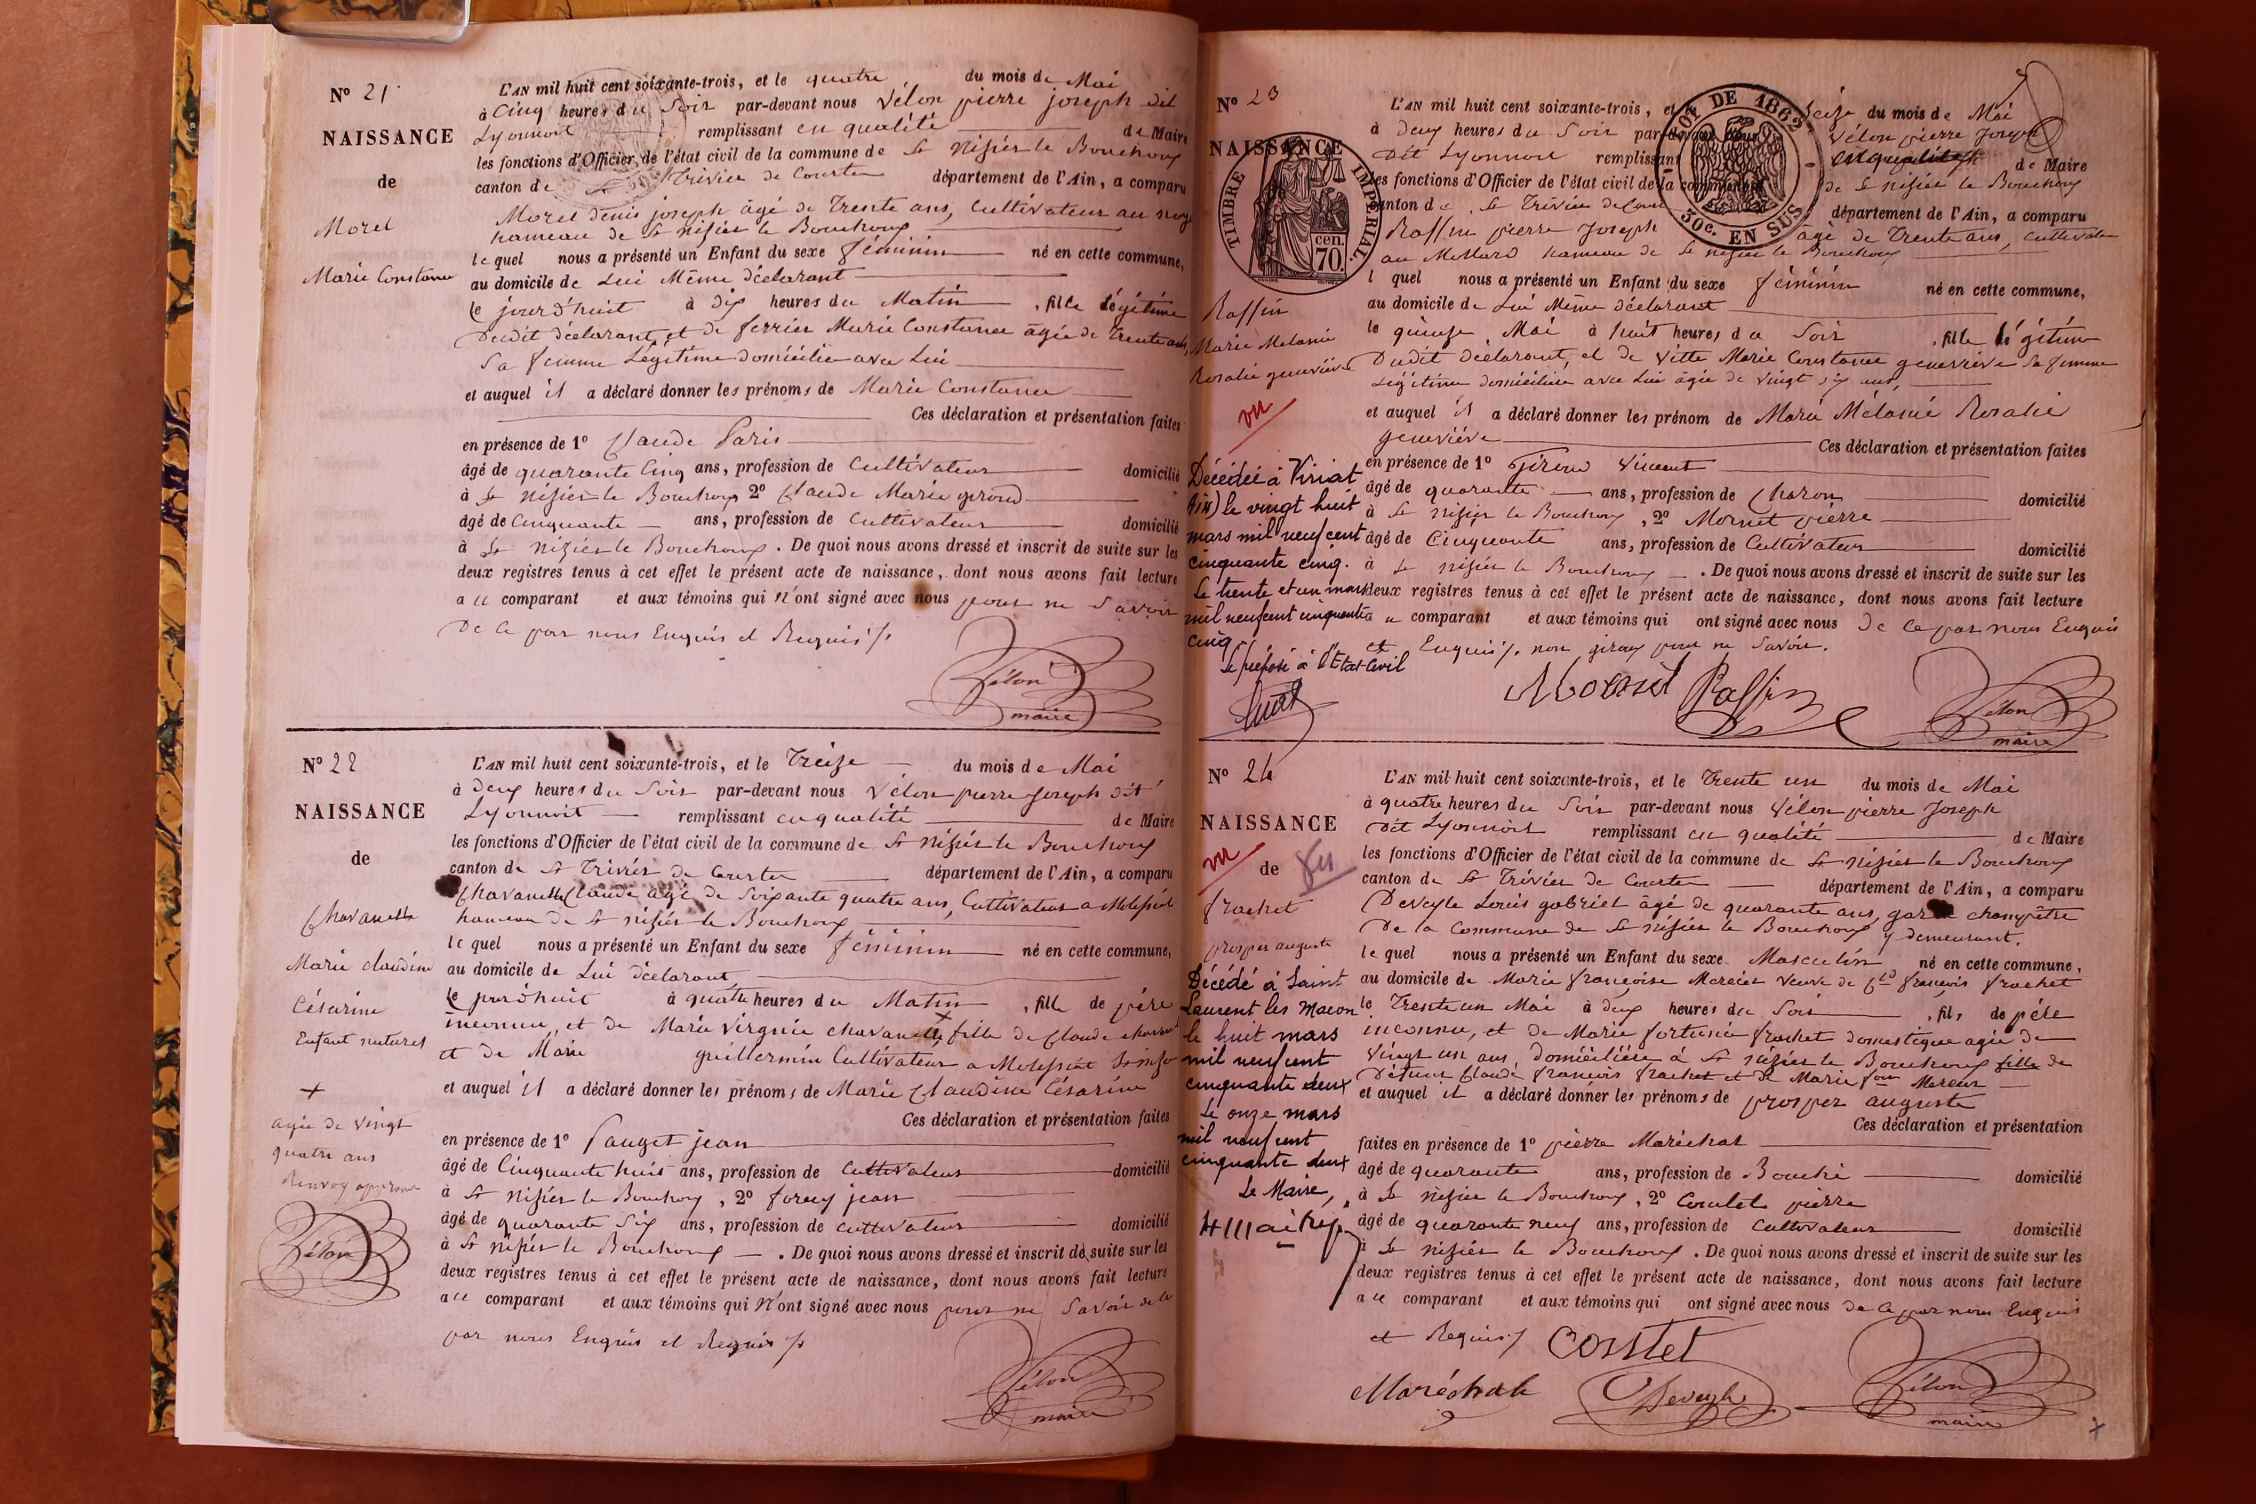 Nº 21
NAISSANCE
de
Morel
Marie Constance
L'AN mil huit cent soixante-trois, et le quatre du mois de Mai
à Cinq heures du Soir par-devant nous Vélon pierre joseph dit
Lyonnoit remplissant en qualité de Maire
les fonctions d'Officier de l'état civil de la commune de St Nizier le Bouchoux
canton de St Trivier de Courtes département de l'Ain, a comparu
Morel denis joseph âgé de Trente ans, Cultivateur au
hameau de St nizier le Bouchoux
lequel nous a présenté un Enfant du sexe féminin né en cette commune,
au domicile de Lui Même déclarant
le jourd'huit à dix heures du Matin, fille légitime
Dudit déclarant, et de ferrier Marie Constance âgée de Trente ans,
Sa femme Légitime domiciliée avec Lui
et auquel il a déclaré donner les prénoms de Marie Constance
Ces déclaration et présentation faites
en présence de 1º Claude Paris
âgé de quarante Cinq ans, profession de Cultivateur domicilié
à St Nizier le Bouchoux 2º Claude Marie giroud
âgé de Cinquante ans, profession de Cultivateur domicilié
à St Nizier le Bouchoux. De quoi nous avons dressé et inscrit de suite sur les
deux registres tenus à cet effet le présent acte de naissance, dont nous avons fait lecture
a ce comparant et aux témoins qui n'ont signé avec nous pour ne Savoir
De Ce par nous Enquis et Requis
Vélon
maire
Nº 22
NAISSANCE
de
Chavanelle
Marie claudine
Césarine
Enfant naturel
+
agée de vingt
quatre ans
Renvoy approuvé
Vélon
L'AN mil huit cent soixante-trois, et le Treize du mois de Mai
à Deux heures du Soir par-devant nous Vélon pierre joseph dit
Lyonnoit remplissant en qualité de Maire
les fonctions d'Officier de l'état civil de la commune de St Nizier le Bouchoux
canton de St Trivier de Courtes département de l'Ain, a comparu
Chavanelle Claude âgé de Soixante quatre ans, Cultivateur a
hameau de St nizier le Bouchoux
lequel nous a présenté un Enfant du sexe féminin né en cette commune,
au domicile de Lui déclarant
le jourd'huit à quatre heures du Matin, fille de père
inconnu, et de Marie Virginie chavanelle fille de Claude
et de Marie guillermin Cultivateur a
et auquel il a déclaré donner les prénoms de Marie Claudine Césarine
Ces déclaration et présentation faites
en présence de 1º Pauget jean
âgé de Cinquante huit ans, profession de Cultivateur domicilié
à St Nizier le Bouchoux, 2º foray jean
âgé de quarante Six ans, profession de Cultivateur domicilié
à St Nizier le Bouchoux. De quoi nous avons dressé et inscrit de suite sur les
deux registres tenus à cet effet le présent acte de naissance, dont nous avons fait lecture
a ce comparant et aux témoins qui n'ont signé avec nous pour ne Savoir de Ce
par nous Enquis et Requis
Vélon
maire
Nº 23
NAISSANCE
TIMBRE IMPÉRIAL.
70 cen.
Raffin
Marie Melanie
Rosalie geneviève
vu
Décédée à Viriat
(Ain) le vingt huit
mars mil neuf cent
cinquante cinq.
Le trente et un mars
mil neuf cent cinquante
cinq
Le préposé à l'Etat-Civil
LOI DE 1862
30c. EN SUS
L'AN mil huit cent soixante-trois, et le Seize du mois de Mai
à Deux heures du Soir par-devant nous Vélon pierre Joseph
Dit Lyonnoit remplissant en qualité de Maire
les fonctions d'Officier de l'état civil de la commune de St Nizier le Bouchoux
canton de St Trivier de Cour département de l'Ain, a comparu
Raffin pierre Joseph âgé de Trente ans, Cultivateur
au hameau de St nizier le Bouchoux
l quel nous a présenté un Enfant du sexe féminin né en cette commune,
au domicile de Lui Même déclarant
le quinze Mai à huit heures du Soir, fille légitime
Dudit déclarant, et de Vitte Marie Constance geneviève Sa femme
Légitime domiciliée avec Lui âgée de vingt six ans,
et auquel il a déclaré donner les prénom de Marie Mélanie Rosalie
geneviève Ces déclaration et présentation faites
en présence de 1º Giroud Vincent
âgé de quarante ans, profession de Charon domicilié
à St Nizier le Bouchoux, 2º Mornet pierre
âgé de Cinquante ans, profession de Cultivateur domicilié
à St Nizier le Bouchoux. De quoi nous avons dressé et inscrit de suite sur les
deux registres tenus à cet effet le présent acte de naissance, dont nous avons fait lecture
a ce comparant et aux témoins qui ont signé avec nous de Ce par nous Enquis
et Enquis, non giroux pour ne Savoir.
Mornet Raffin
Vélon
maire
Nº 24
NAISSANCE
vu de vu
frachet
prosper auguste
Décédé à Saint
Laurent les Macon
le huit mars
mil neuf cent
cinquante deux
Le onze mars
mil neuf cent
cinquante deux
Le Maire,
L'AN mil huit cent soixante-trois, et le Trente un du mois de Mai
à quatre heures du Soir par-devant nous Vélon pierre Joseph
Dit Lyonnoit remplissant en qualité de Maire
les fonctions d'Officier de l'état civil de la commune de St Nizier le Bouchoux
canton de St Trivier de Courtes département de l'Ain, a comparu
Deveyle Louis gabriel âgé de quarante ans, garde champêtre
De la Commune de St Nizier le Bouchoux y demeurant.
lequel nous a présenté un Enfant du sexe Masculin né en cette commune,
au domicile de Marie françoise Mercier veuve de Cld françois frachet
le Trente un Mai à deux heures du Soir, fils de père
inconnu, et de Marie fortunée frachet domestique agée de
Vingt un ans, Domiciliée à St Nizier le Bouchoux fille de
Défunt Claude françois frachet et de Marie fse Mercier
et auquel il a déclaré donner les prénoms de prosper auguste
Ces déclaration et présentation
faites en présence de 1º pierre Maréchal
âgé de quarante ans, profession de Bouché domicilié
à St Nizier le Bouchoux, 2º Coutet pierre
âgé de quarante neuf ans, profession de Cultivateur domicilié
à St Nizier le Bouchoux. De quoi nous avons dressé et inscrit de suite sur les
deux registres tenus à cet effet le présent acte de naissance, dont nous avons fait lecture
a ce comparant et aux témoins qui ont signé avec nous de Ce par nous Enquis
et Requis
Maréchal Deveyle
Vélon
maire